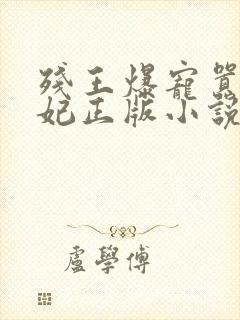 殘王爆寵囂
妃正版小說
盧學傅